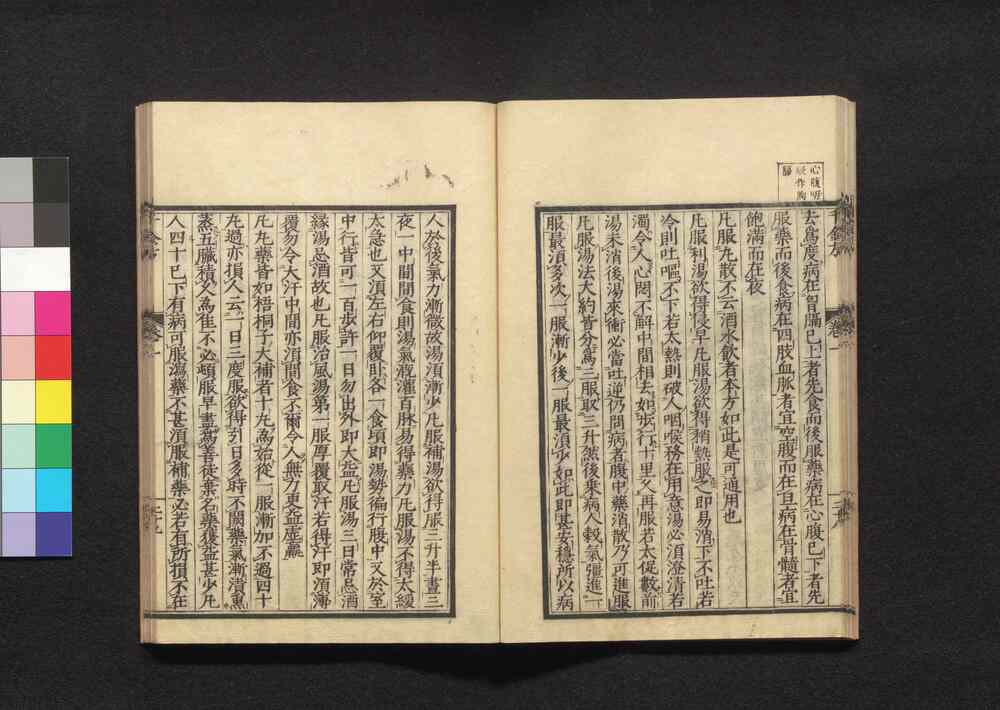 心腹
作胸
去為度病在胷膈已上者先食而後服藥病在心腹已下者先
服藥而後食病在四肢血脈者宜空腹而在旦病在骨髓者宜
飽滿而在夜
凡服丸散不云酒水飲者本方如此是可通用也
凡服利湯欲得侵早凡服湯欲得稍熱服之即易消下不吐若
冷則吐嘔不下若太熱則破人咽喉務在用意湯必須澄清若
濁令人心悶不解中間相去如步行十里久再服若太促數前
湯未消後湯來衝必當吐逆仍問病者腹中藥消散乃可進服
凡服湯法大約皆分為三服取三升然後乘病人穀氣彊進一
服最須多次一服漸少後一服最須少如此即甚安穩所以病
人於後氣力漸微故湯須漸少凡服補湯欲得服三升半晝三
夜一中間間食則湯氣溉灌百脉易得藥力凡服湯不得太緩
太急也又須左右仰覆卧各一食頃即湯勢徧行腹中又於室
中行皆可一百步許一日勿出外即大益凡服湯三日常忌酒
緣湯忌酒故也凡服治風湯第一服厚覆取汗若得汗即須薄
覆勿令大汗中間亦須間食不爾令人無力更益虛羸
凡丸藥皆如梧桐子大補者十丸為始從一服漸加不過四十
丸過亦損人云一日三度服欲得引日多時不闕藥氣漸漬熏
蒸五臟積久為佳不必頓服早盡為善徒棄名藥獲益甚少凡
人四十已下有病可服瀉藥不甚須服補藥必若有所損不在